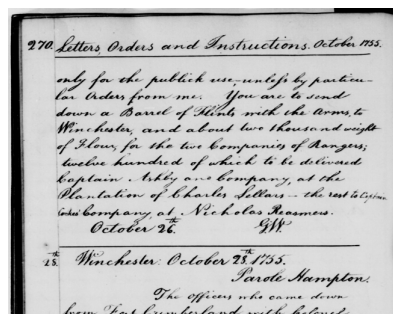 270. Letters, Orders and Instructions. October 1755.
only for the publick use, unless by particu-
lar Orders from me. You are to send
down a Barrel of Flints with the Arms, to
Winchester, and about two thousand weight
of Flour, for the two Companies of Rangers;
twelve hundred of which to be delivered
Captain Ashby and Company, at the
Plantation of Charles Sellars - the rest to Captain
Cockes Company, at Nicholas Reasmers.
October 26th. GW.
28th. Winchester: October 28th. 1755.
Parole Hampton.
The Officers who came down
from Fort Cumberland with Colonel